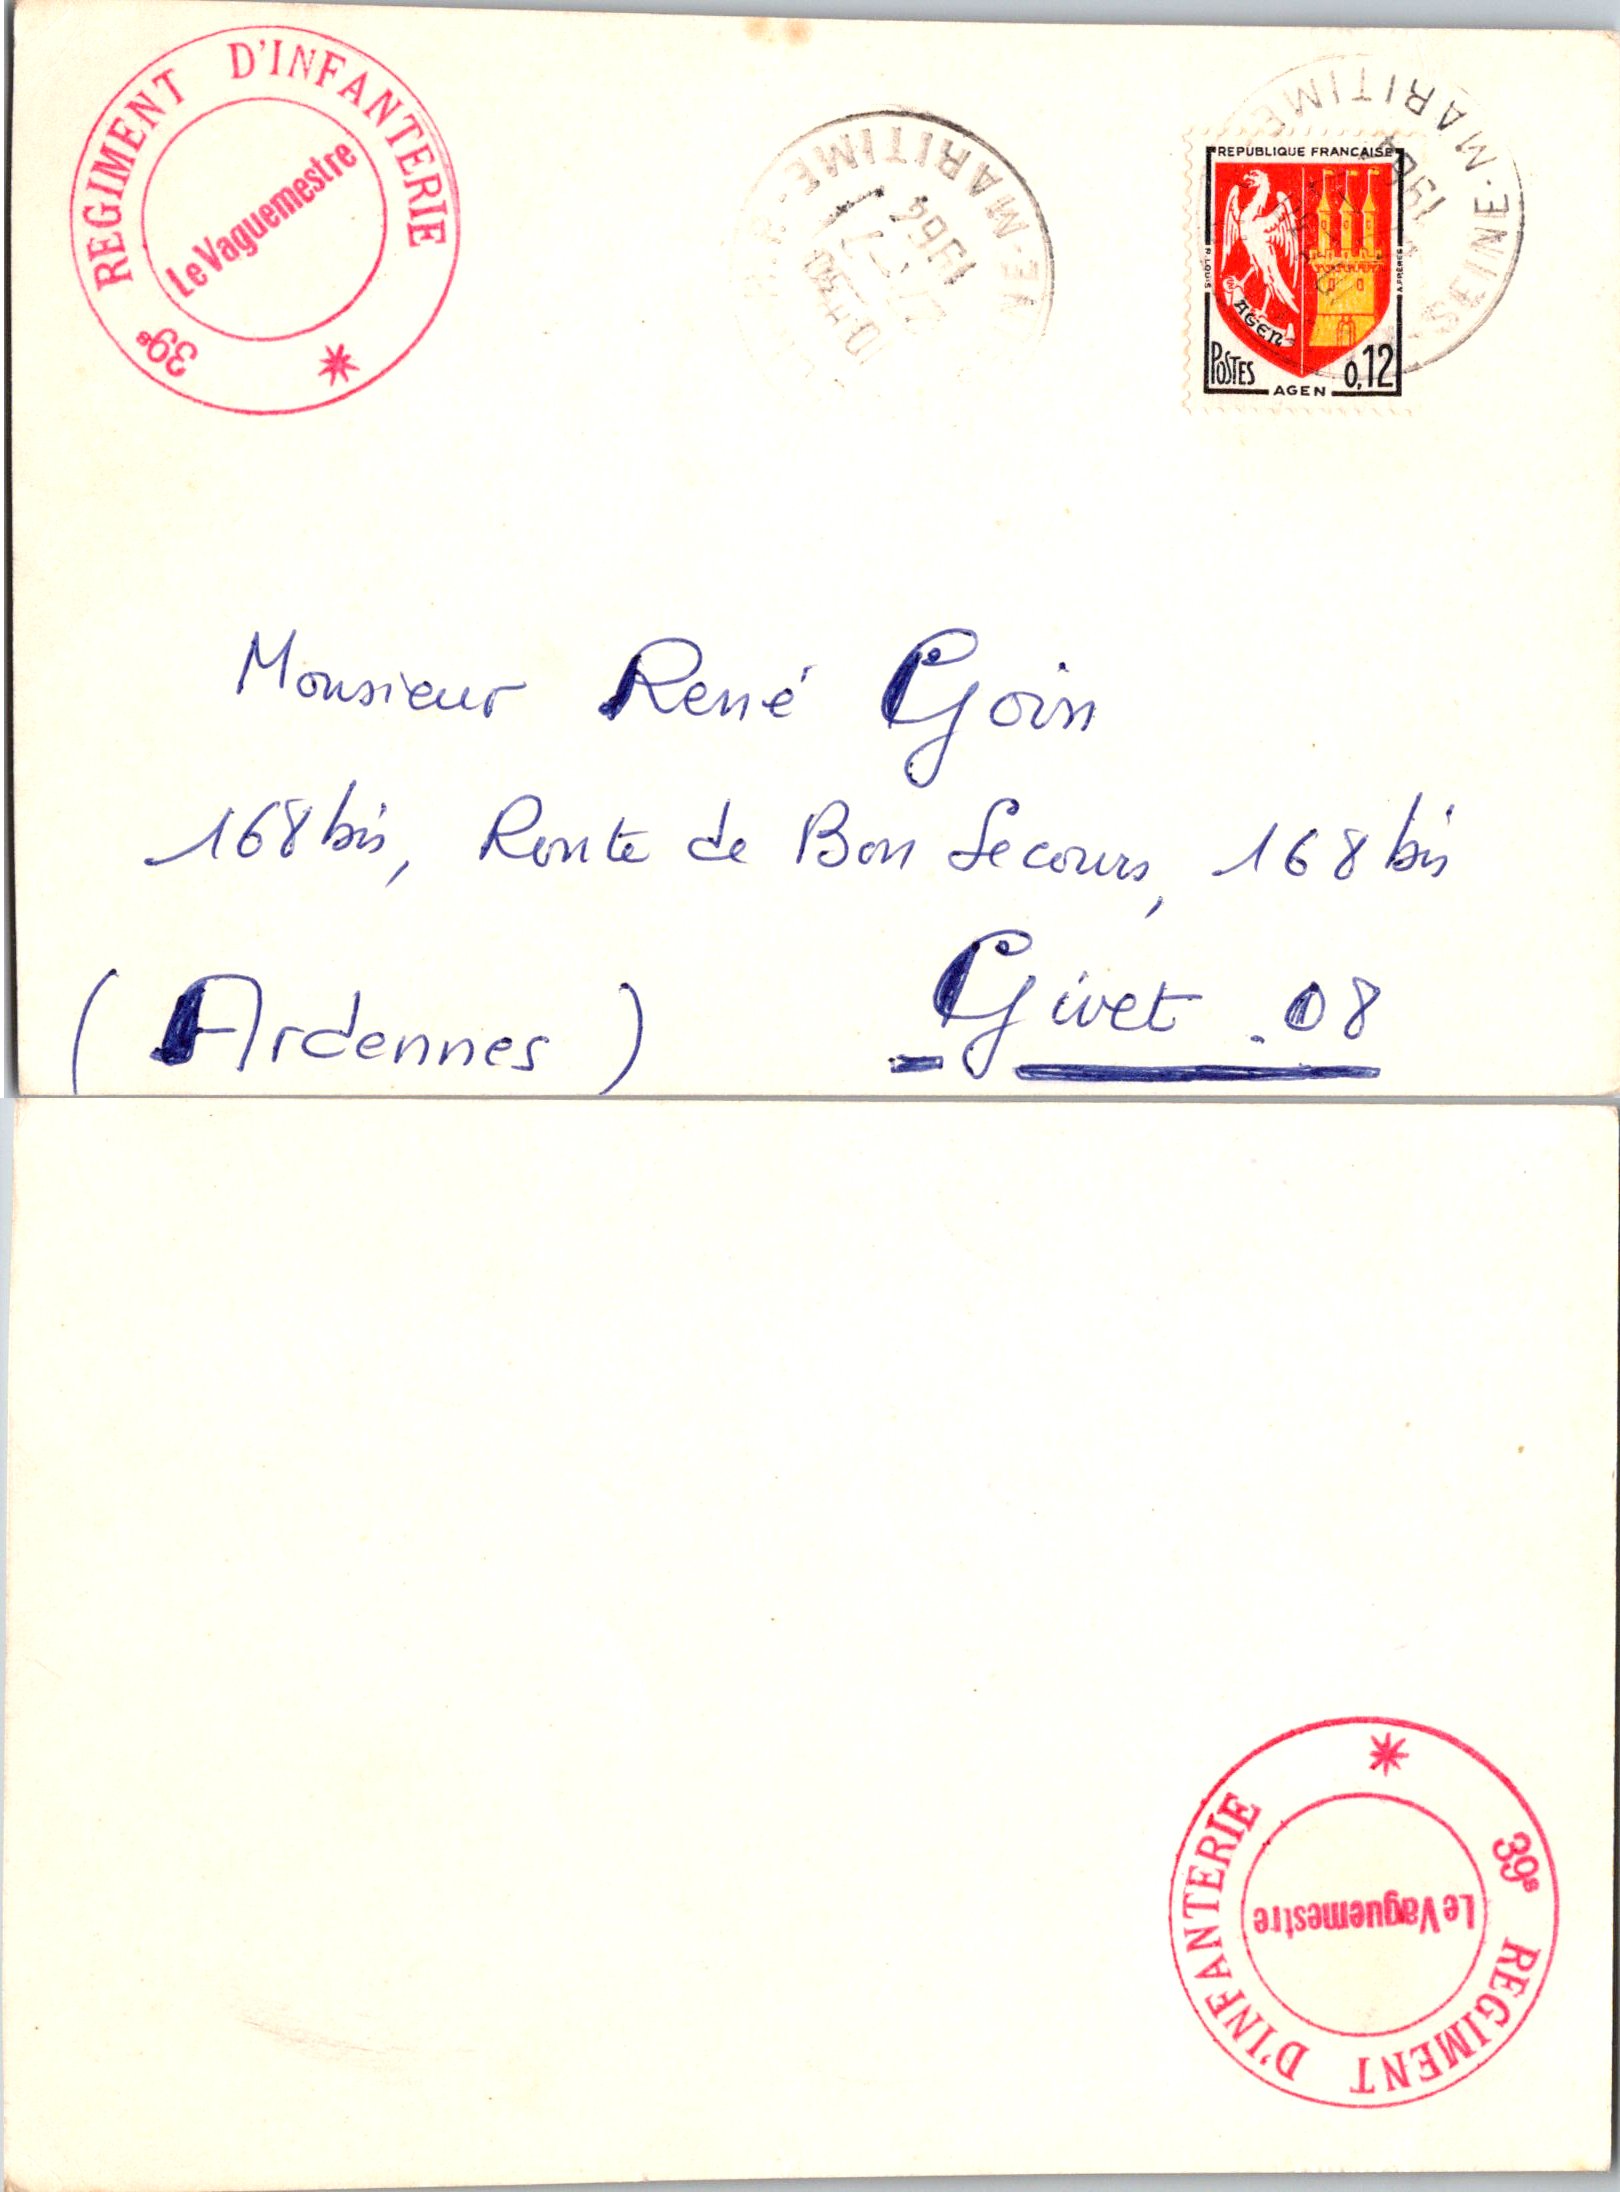 39e REGIMENT D'INFANTERIE
Le Vaguemestre
MARITIME
1964
SEINE-MARITIME
1964
REPUBLIQUE FRANCAISE
AGEN
POSTES
0,12
AGEN
Monsieur René Goin
168 bis, Route de Bon Secours, 168 bis
(Ardennes) Givet . 08
39e REGIMENT D'INFANTERIE
Le Vaguemestre